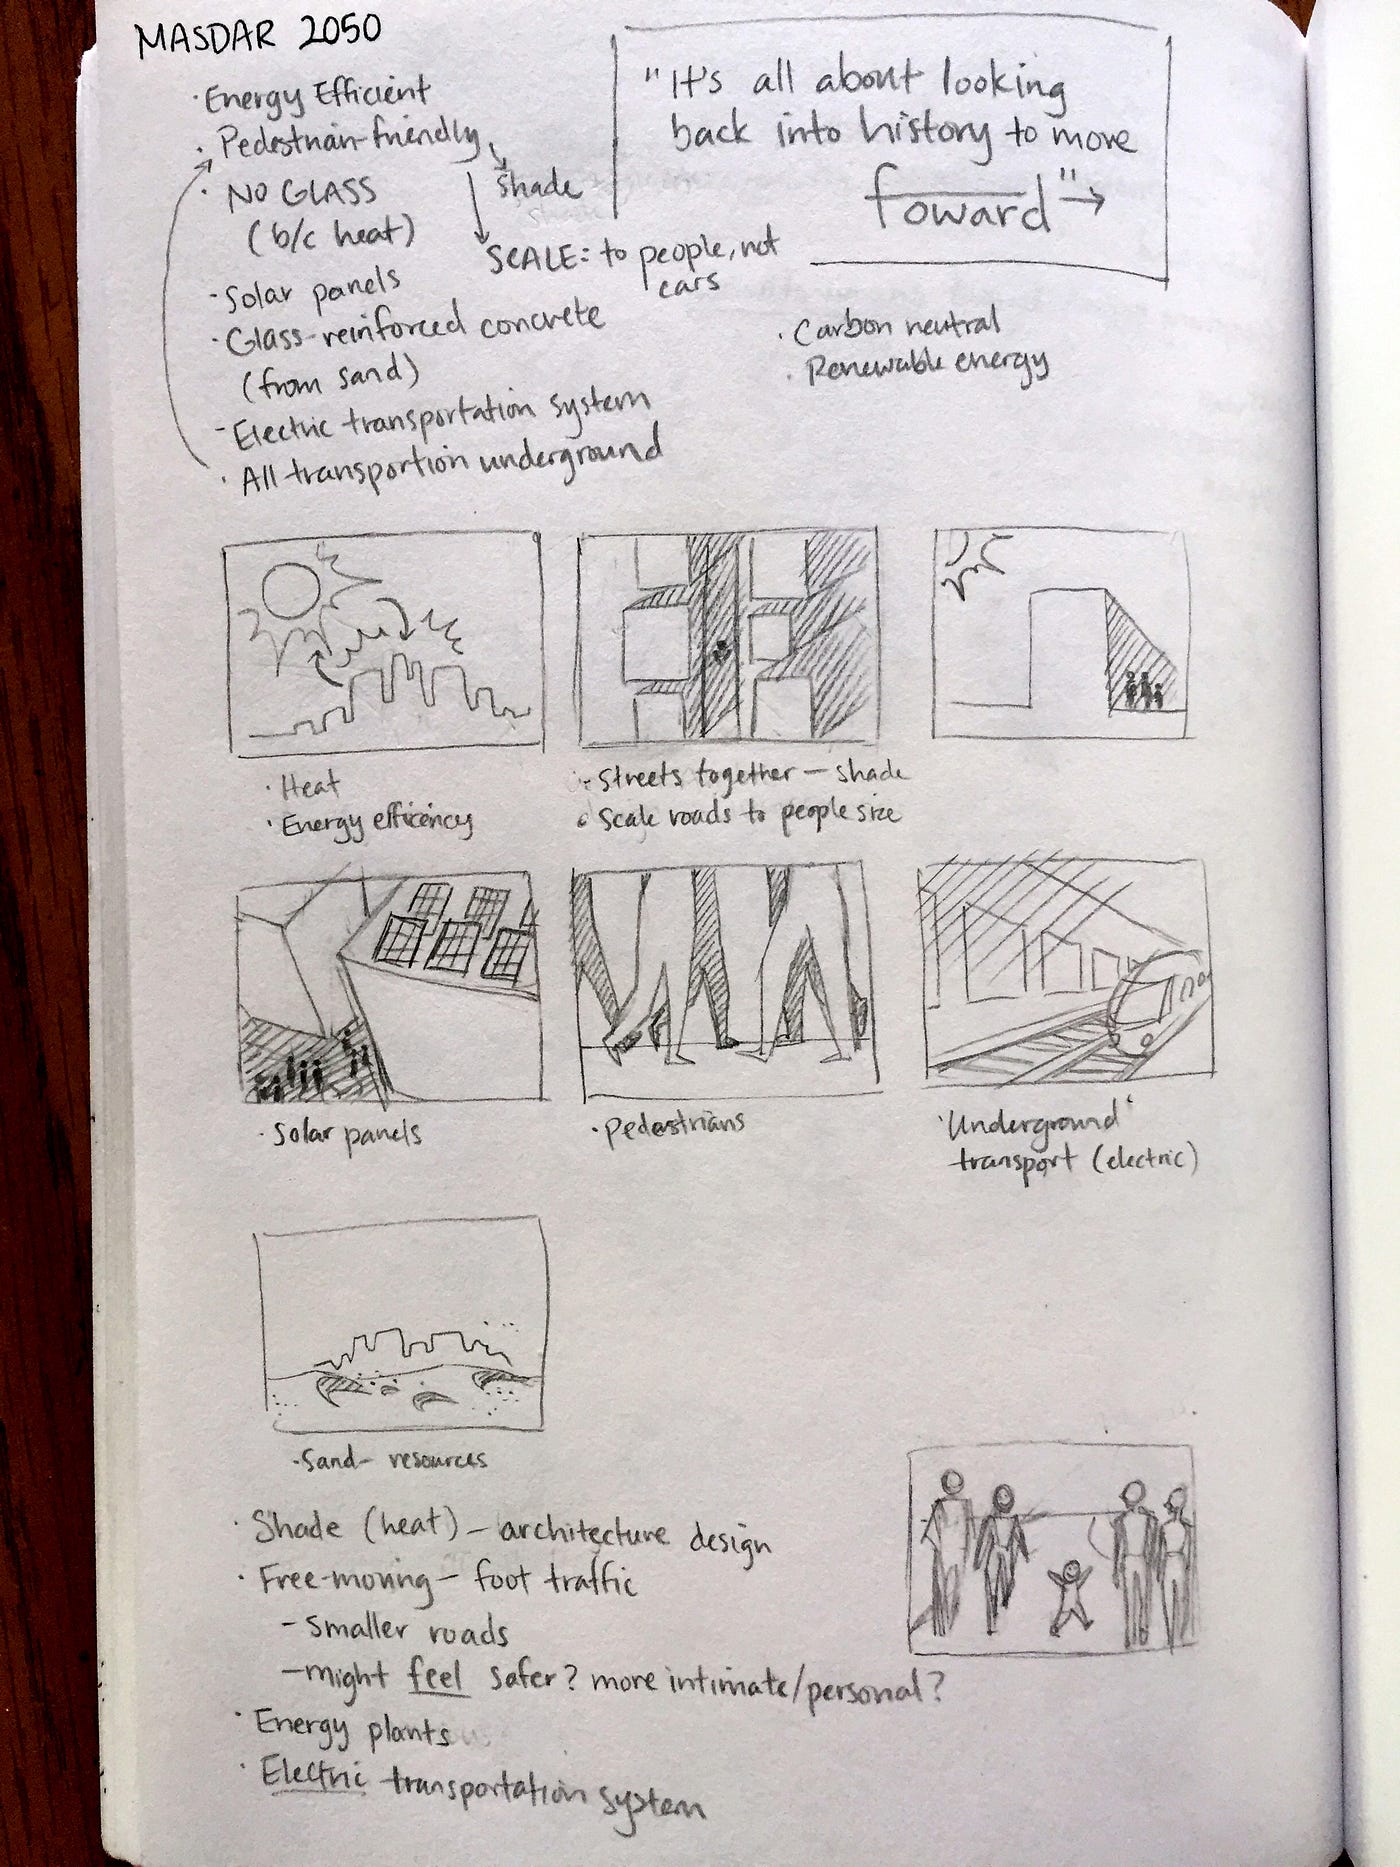 MASDAR 2050
· Energy Efficient
· Pedestrain-friendly
shade
· NO GLASS
(b/c heat)
SCALE: to people, not
cars
· Solar panels
· Glass-reinforced concrete
(from sand)
- Electric transportation system
· All transportion underground
"It's all about looking
back into history to move
foward" →
· Carbon neutral
· Renewable energy
· Heat
· Energy efficency
· Streets together — shade
· Scale roads to people size
· Solar panels
· Pedestrians
'Underground'
transport (electric)
· Sand - resources
· Shade (heat) - architecture design
· Free-moving - foot traffic
- Smaller roads
- might feel safer? more intimate/personal?
· Energy plants
· Electric transportation system